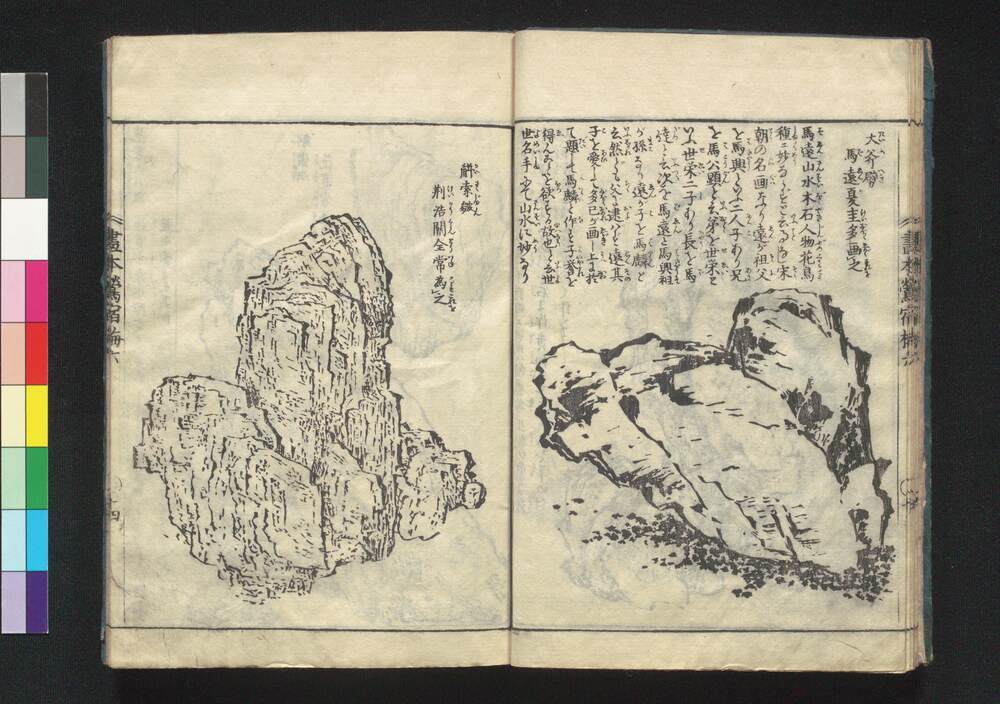 大斧劈
馬遠夏圭多画之
馬遠山水木石人物花鳥
種々妙なりと云る也宋
朝の名画なり遠が祖父
を馬興といふ二人子あり兄
を馬公顕と云弟を世栄と
いふ世栄二子あり長を馬
逵と云次を馬遠と馬興祖
が孫なり遠が子を馬麟と
云然れども父に逮ばず遠其
子を愛して多己が画し上に於
て題して馬麟と作も子誉を
得んことを欲する故也と云世
世名手にて山水に妙なり
解索皴
荊浩關仝常為之
畫本鶯宿梅六
畫本鶯宿梅六
十四